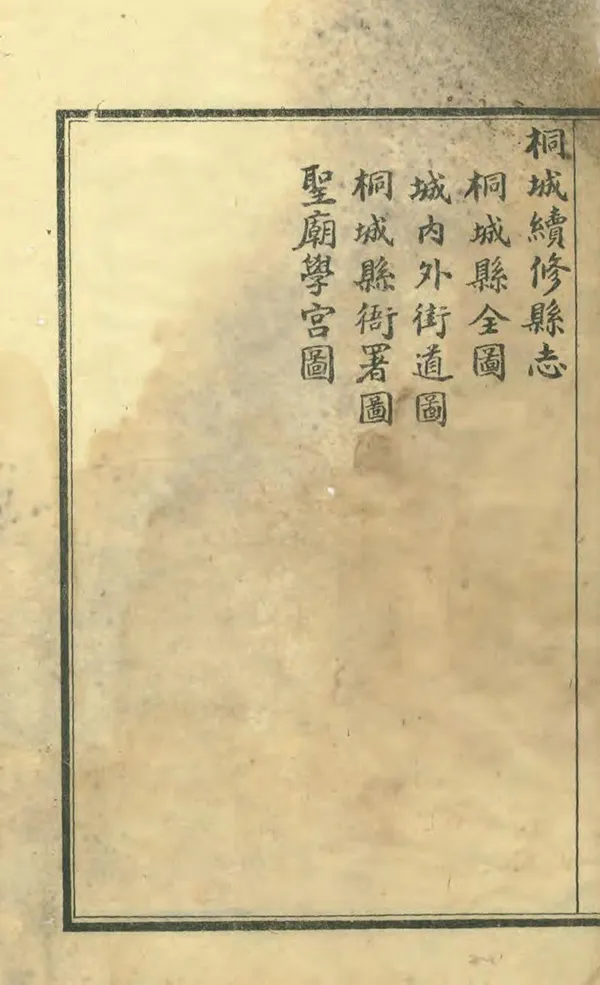 桐城續修縣志
桐城縣全圖
城內外街道圖
桐城縣衙署圖
聖廟學宮圖